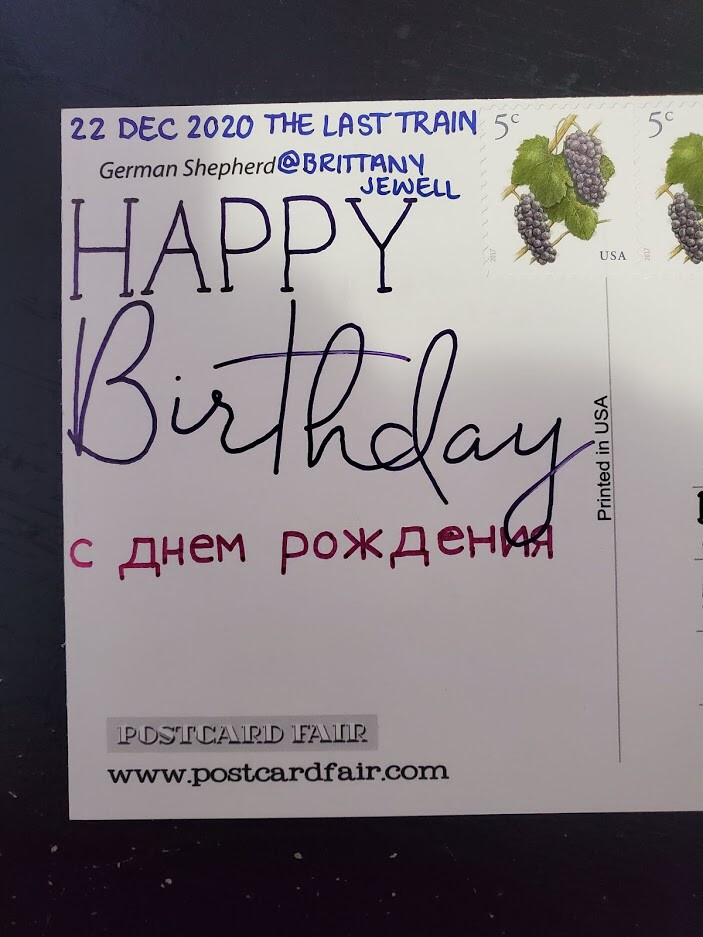 22 DEC 2020 THE LAST TRAIN
German Shepherd @BRITTANY
JEWELL
5c
5c
2017
USA
2017
HAPPY
Birthday
с днем рождения
Printed in USA
POSTCARD FAIR
www.postcardfair.com